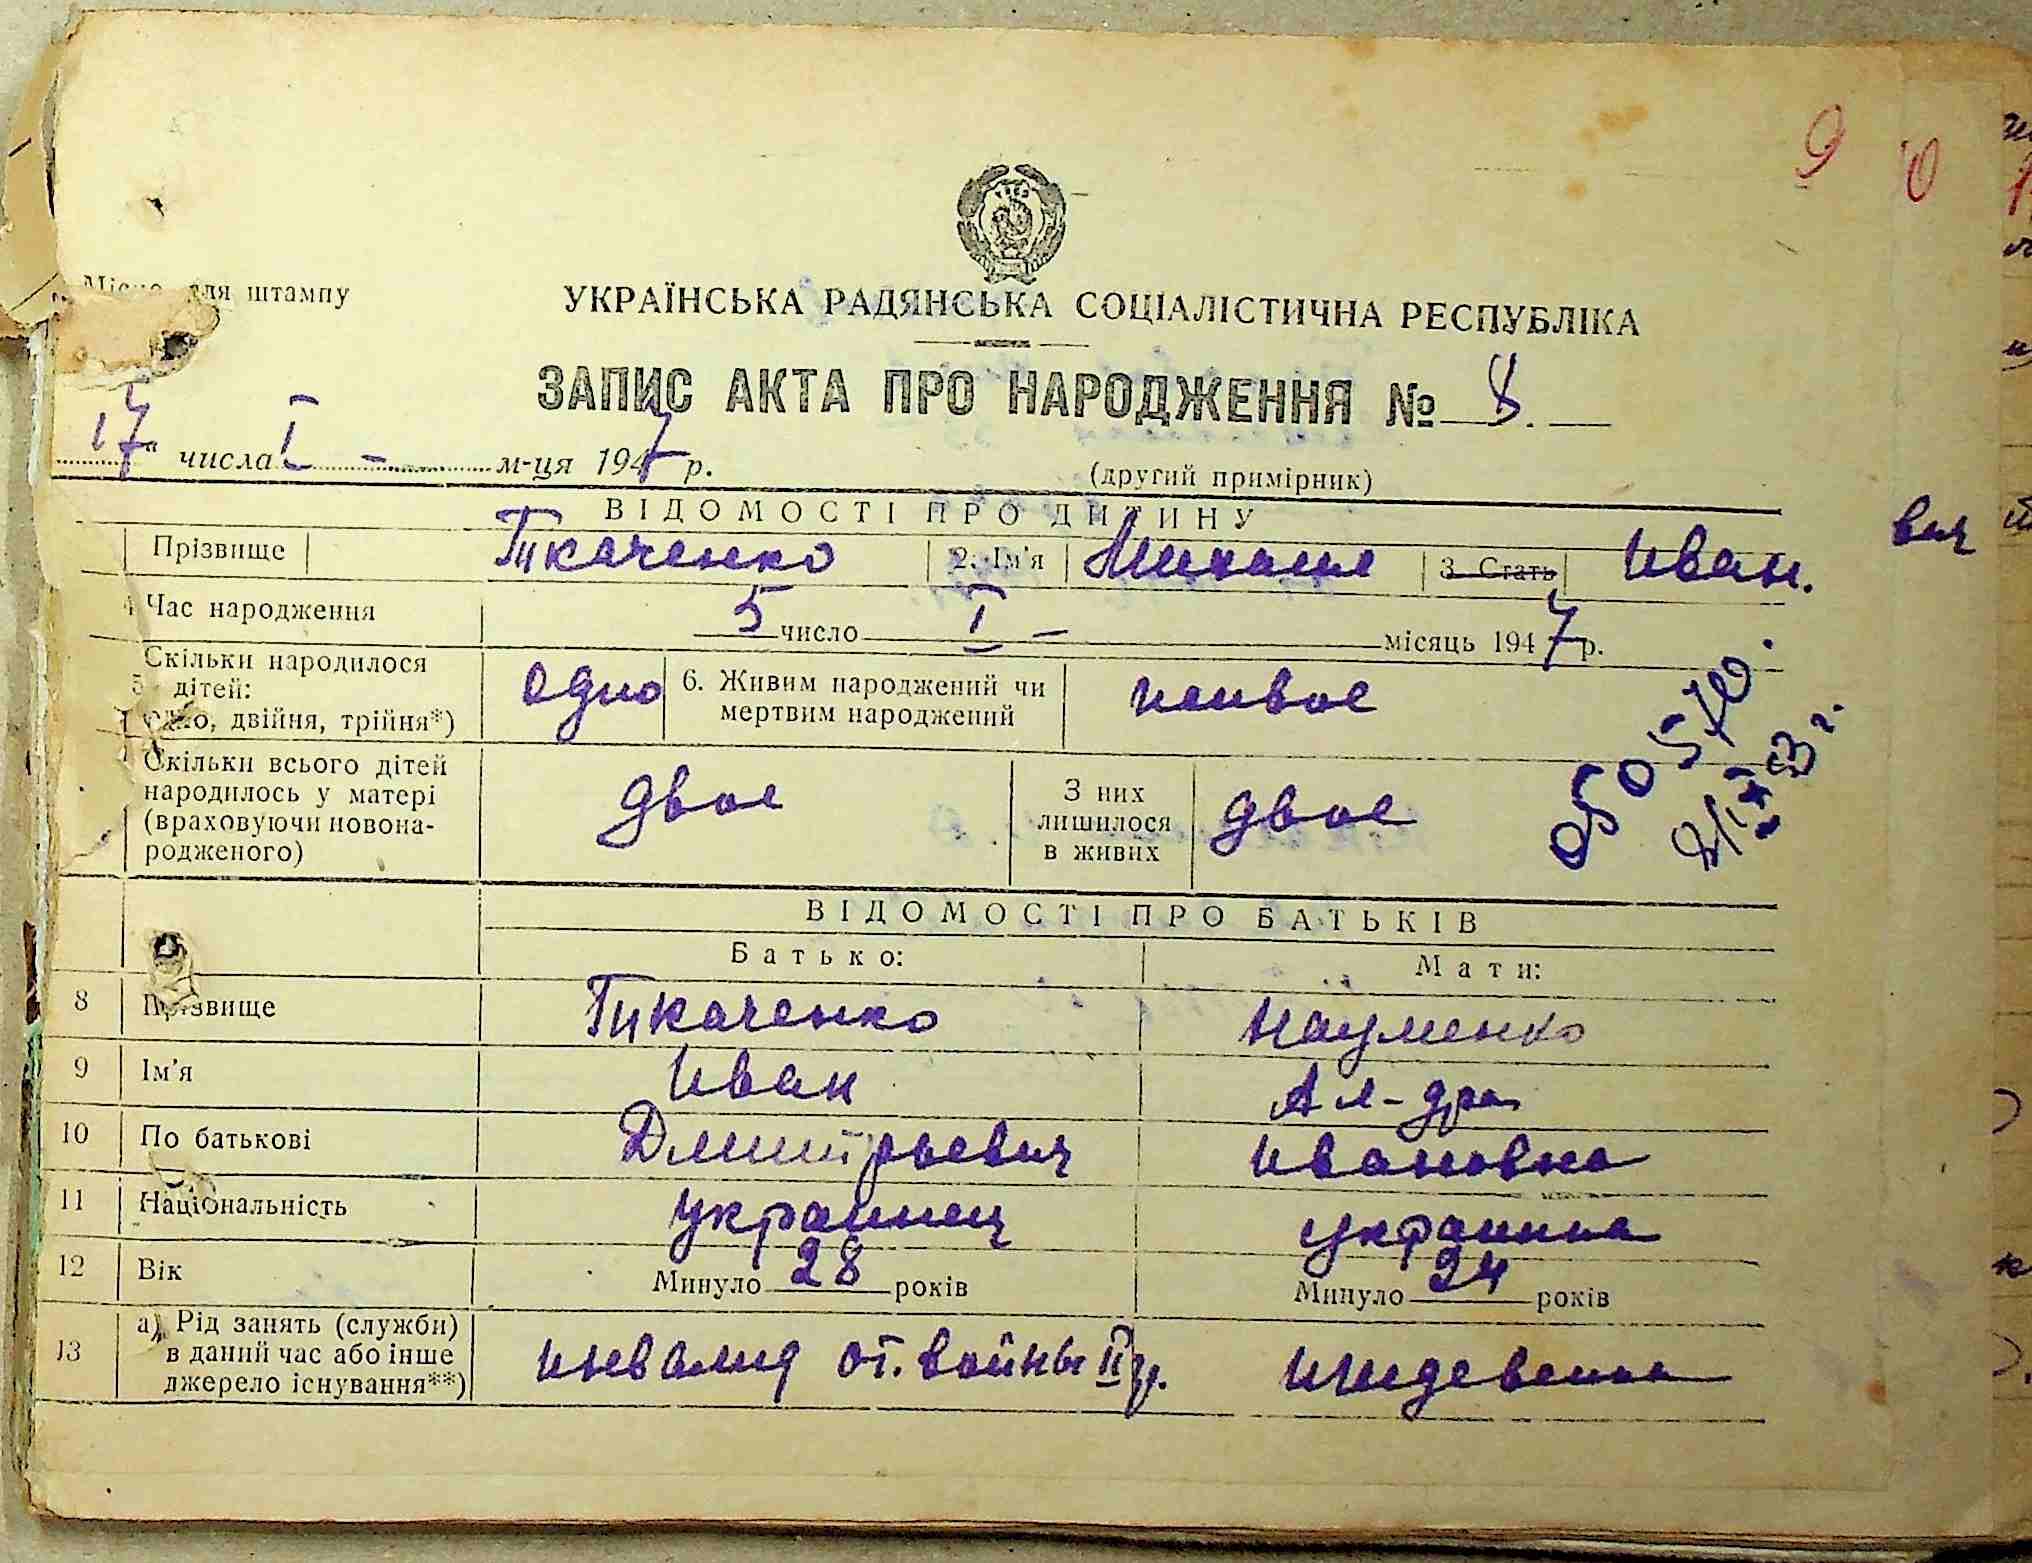 9 0
для штампу
УКРАЇНСЬКА РАДЯНСЬКА СОЦІАЛІСТИЧНА РЕСПУБЛІКА
ЗАПИС АКТА ПРО НАРОДЖЕННЯ № 8.
17 числа I - м-ця 1947 р.
(другий примірник)
ВІДОМОСТІ ПРО ДИТИНУ
Прізвище Ткаченко 2. Ім'я Михаил 3. Стать Иван.вич
Час народження 5 число I - місяць 1947 р.
Скільки народилося
5 дітей:
одно, двійня, трійня*) одно 6. Живим народжений чи
мертвим народжений живое
Скільки всього дітей
народилось у матері
(враховуючи новона-
родженого) двое З них
лишилося
в живих двое
ВІДОМОСТІ ПРО БАТЬКІВ
Батько: Мати:
8 Прізвище Ткаченко Науменко
9 Ім'я Иван Ал-дра
10 По батькові Дмитрьевич Ивановна
11 Національність украинец украинка
12 Вік Минуло 28 років Минуло 24 років
13 а) Рід занять (служби)
в даний час або інше
джерело існування**) инвалид от. войны II гр. иждевенка